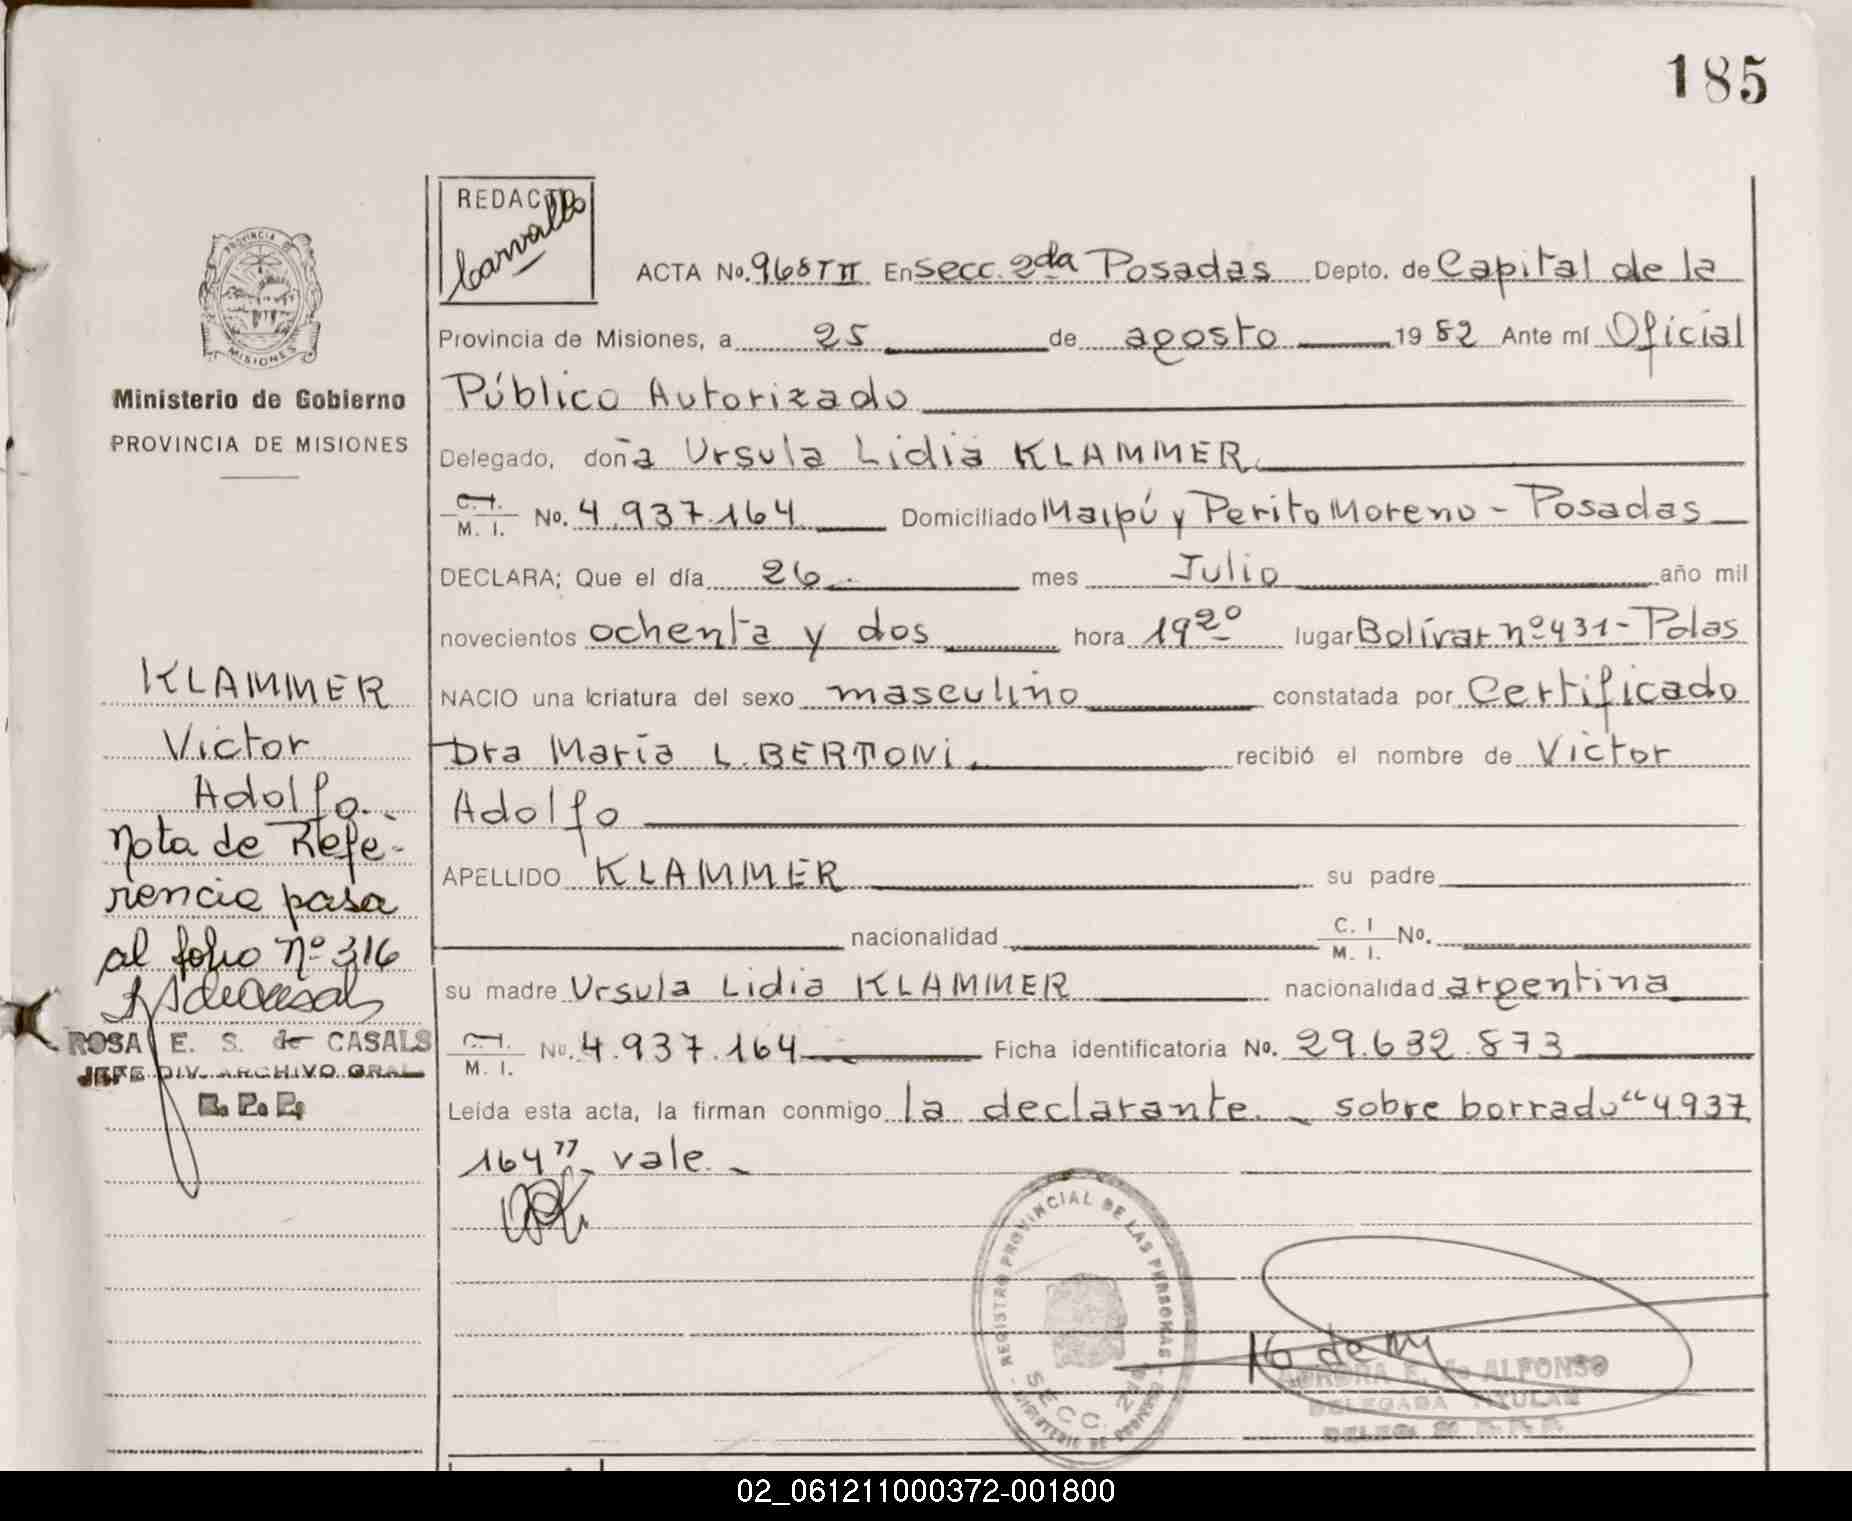 185
REDACTO
Carvallo
ACTA No. 968 T II En Secc. 2da Posadas Depto. de Capital de la
Provincia de Misiones, a 25 de agosto 1982 Ante mí Oficial
Público Autorizado
Delegado, doña Ursula Lidia KLAMMER
C. I. / M. I. No. 4.937.164 Domiciliado Maipú y Perito Moreno - Posadas
DECLARA; Que el día 26 mes Julio año mil
novecientos ochenta y dos hora 19 20 lugar Bolívar nº 431 - Pdas
NACIO una criatura del sexo masculino constatada por Certificado
Dra María L. BERTONI. recibió el nombre de Victor
Adolfo
APELLIDO KLAMMER su padre
nacionalidad C. I / M. I. No.
su madre Ursula Lidia KLAMMER nacionalidad argentina
C. I. / M. I. No. 4.937.164 Ficha identificatoria No. 29.632.873
Leída esta acta, la firman conmigo la declarante. - sobre borrado "4937
164" vale. -
PROVINCIA DE
MISIONES
Ministerio de Gobierno
PROVINCIA DE MISIONES
KLAMMER
Victor
Adolfo.
Nota de Refe-
rencia pasa
al folio Nº 316
ROSA E. S. de CASALS
JEFE DIV. ARCHIVO GRAL
R. P. P.
REGISTRO PROVINCIAL DE LAS PERSONAS
SECC. 2da
MINISTERIO DE GOBIERNO
AURORA E. de ALFONSO
DELEGADA TITULAR
02_061211000372-001800